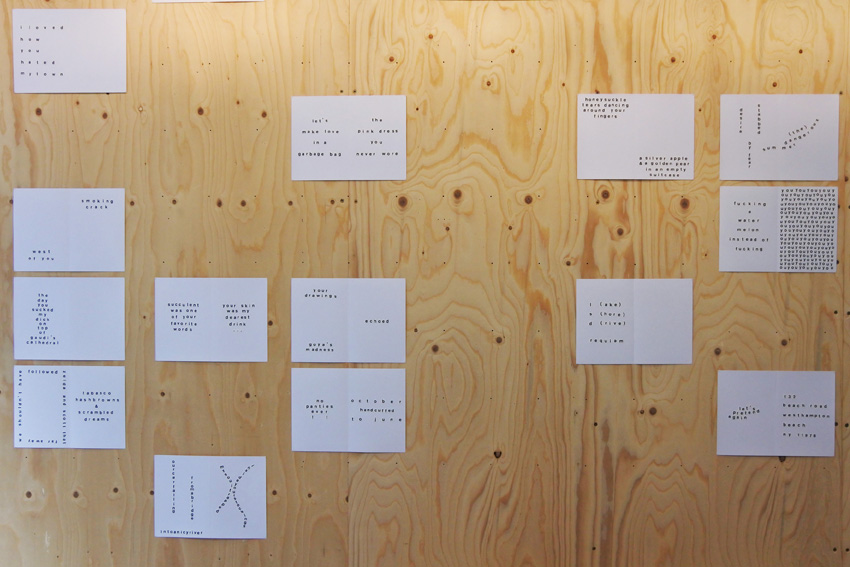 i loved
how
you
hated
my town
let's
make love
in a
garbage bag
the
dress
you
never wore
honeysuckle
tears dancing
around your
fingers
a silver apple
& a golden pear
in an empty
suitcase
desire
stabbed
sum (the) dangerous
mer
smoking
crack
west
of you
fucking
a
water
melon
instead of
fucking
the
day
you
sucked
my
dick
on
top
of
gaudi's
cathedral
succulent
was one
of your
favorite
words
your skin
was my
dearest
drink
...
your
drawings
echoed
goya's
madness
l (ake)
s (harp)
d (rive)
requiem
we shouldn't have
followed
and scott that
tobasco
hashbrowns
&
scrambled
dreams
no
panties
ever
october
handcuffed
to june
let's
pretend
again
beach road
westhampton
beach
ny
fromabridge
intoanicyriver